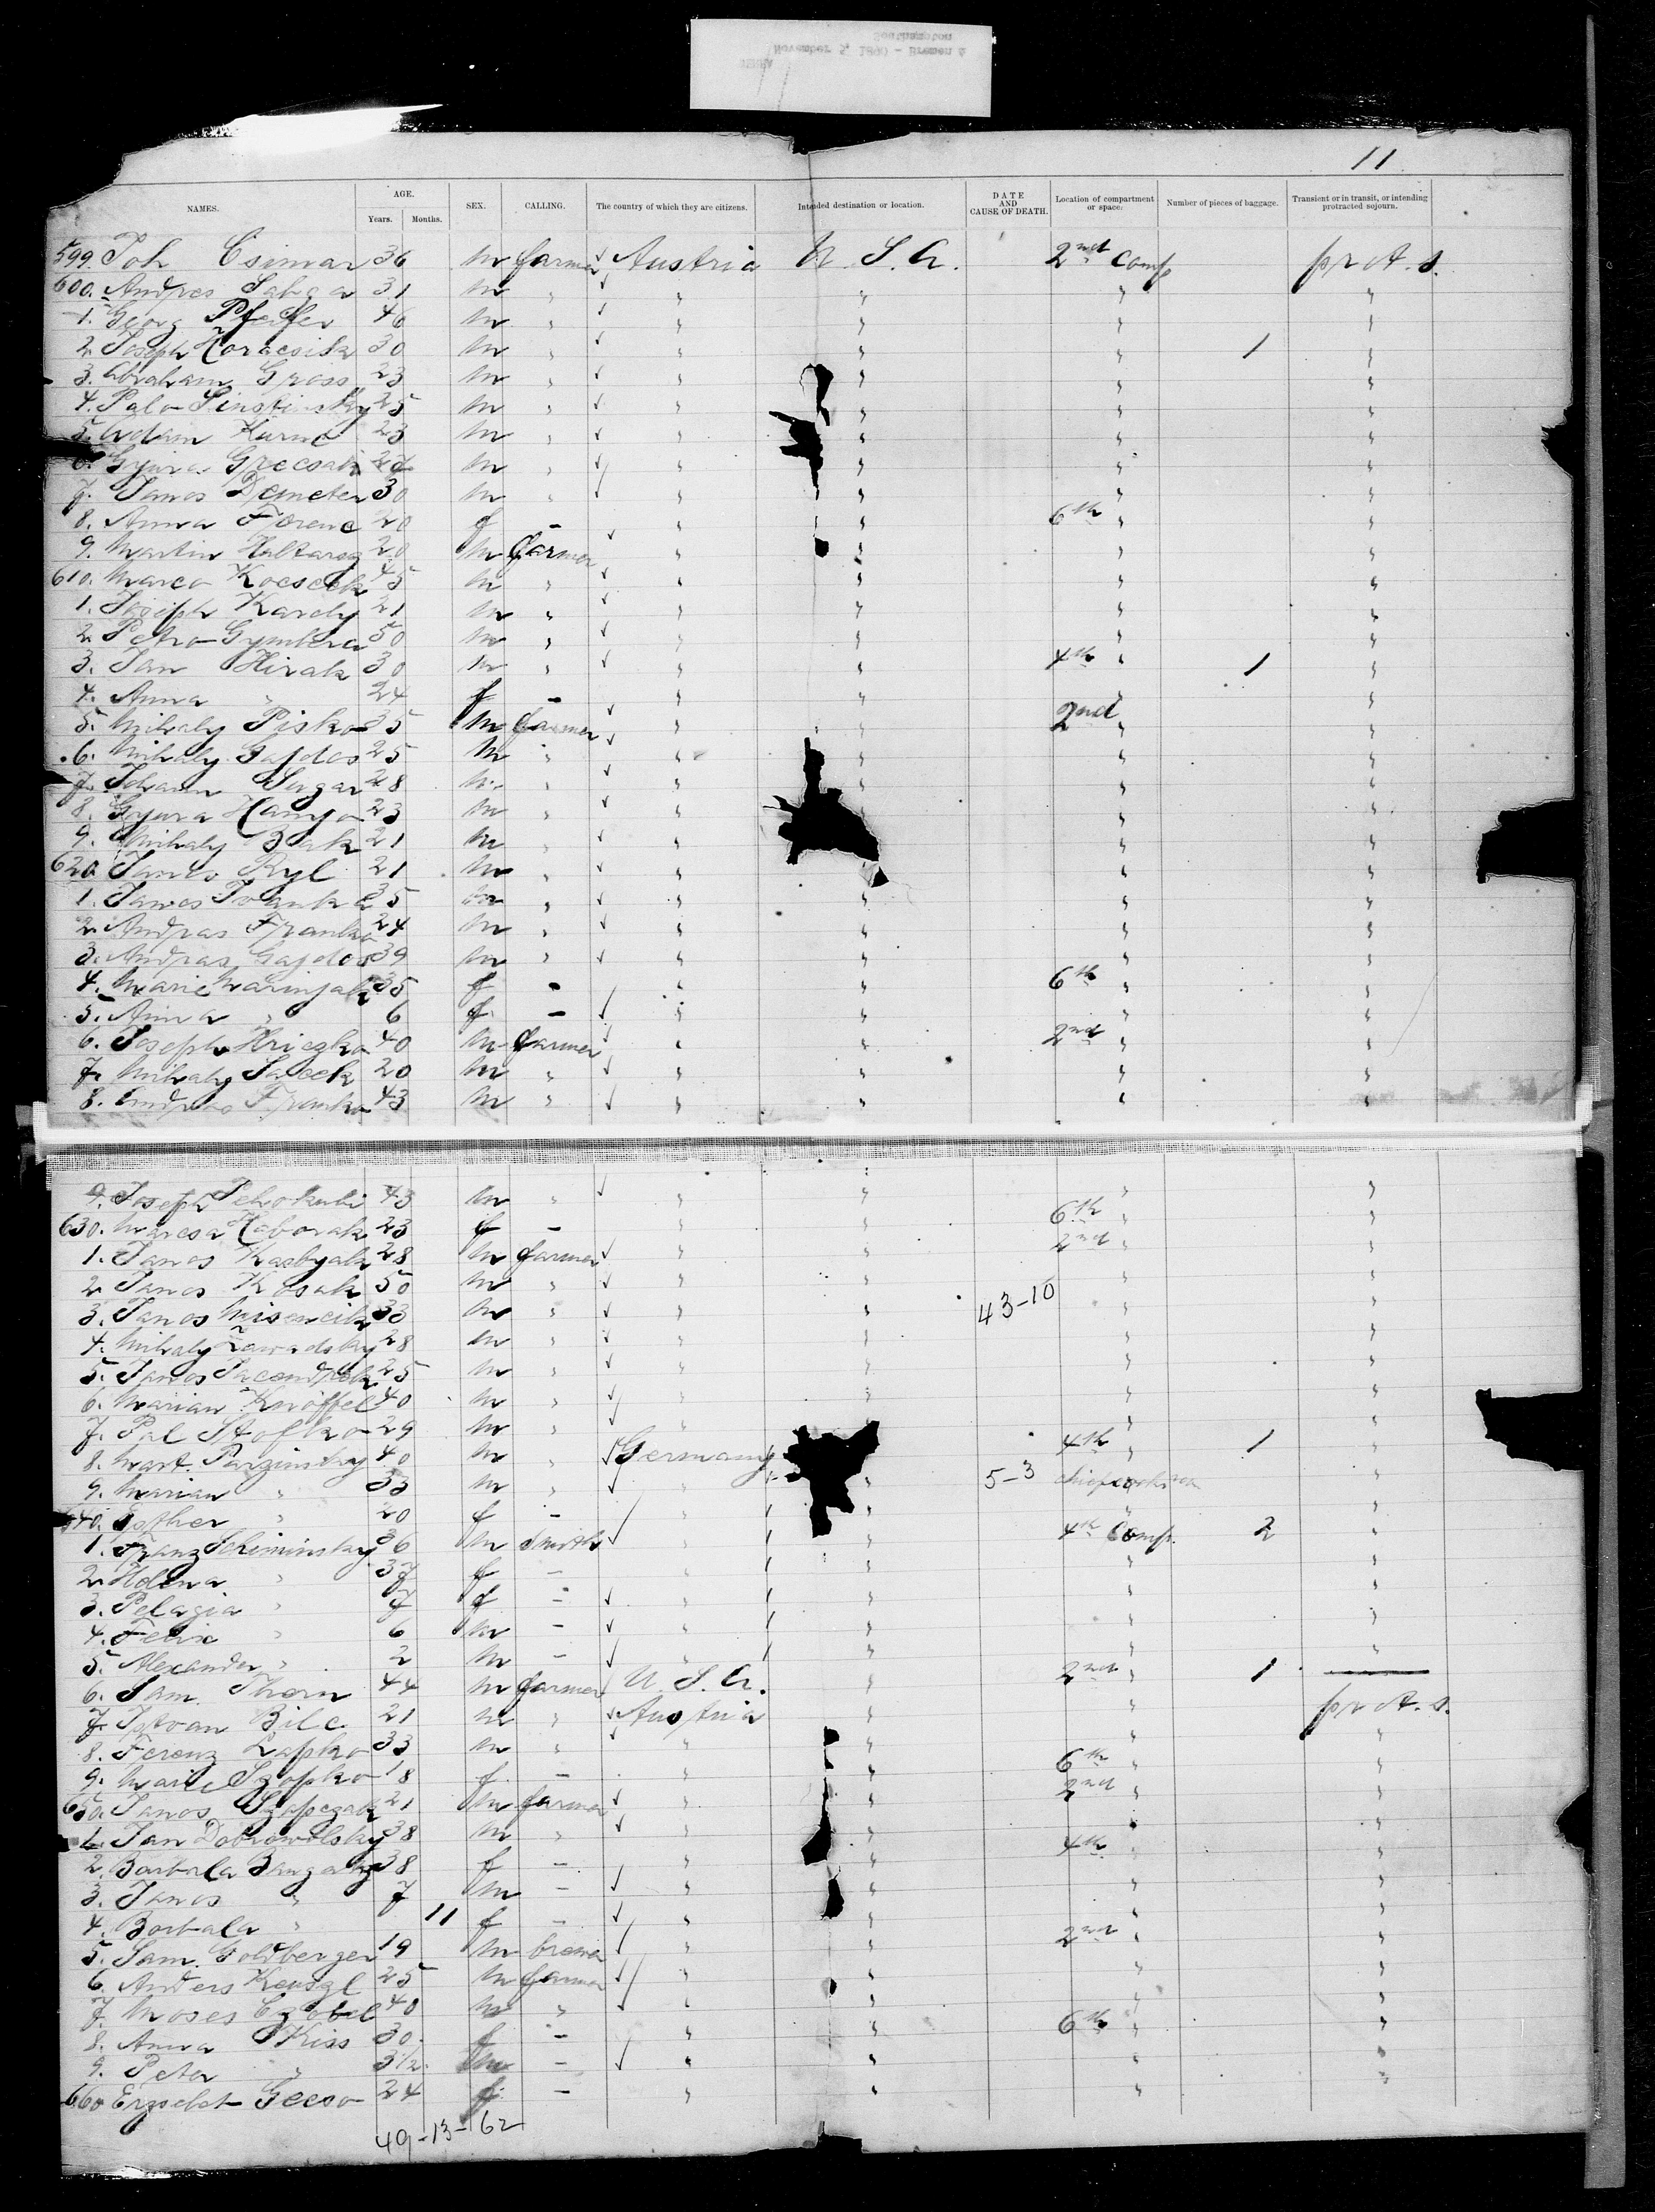 Southampton
November 5, 1890 - Bremen &
WERRA
11
NAMES. AGE. Years. Months. SEX. CALLING. The country of which they are citizens. Intended destination or location. DATE AND CAUSE OF DEATH. Location of compartment or space. Number of pieces of baggage. Transient or in transit, or intending protracted sojourn.
599. Joh Csimar 36 m farmer Austria U. S. A. 2nd Comp pr A. s.
600. Andres 31 m " " " " "
1. Georg Pfeifer 46 m " " " " "
2. Joseph Horacsik 30 m " " " " 1 "
3. Abraham Gross 23 m " " " " "
4. Palo Sinstinsky 25 m " " " " "
5. Adam 23 m " " " " "
6. Gyura Grecsak m " " " " "
7. Janos Demeter 30 m " " " " "
8. Anna Ferenc 20 f - " " 6th " "
9. Martin 20 m farmer " " " "
610. Marco 45 m " " " " "
1. Joseph Karoly 21 m " " " " "
2. Petro Gymbera 50 m " " " " "
3. Jan Hirak 30 m " " " 4th " 1 "
4. Anna " 24 f - " " " "
5. Mihaly Pisko 35 m farmer " " 2nd " "
6. Mihaly Gajdos 25 m " " " " "
7. Johann Sugar 28 m " " " " "
8. Gyura Hanyo 23 m " " " " "
9. Mihaly Bak 21 m " " " "
620. Janos Ryl 21 m " " " " "
1. Janos Ivank 35 m " " " " "
2. Andras Franko 24 m " " " " "
3. Andras Gajdos 39 m " " " " "
4. Marie Warinjak 35 f - " " 6th " "
5. Anna " 6 f - " " " "
6. Joseph Hriczko 40 m farmer " " 2nd " "
7. Mihaly 20 m " " " " "
8. Andras Franko 43 m " " " " "
9. Joseph 43 m " " " " "
630. Marcsa Haborak 23 f - " " 6th " "
1. Janos Kasbyak 28 m farmer " " 2nd " "
2. Janos Kosak 50 m " " " " "
3. Janos Misencik 33 m " " " 43-10 " "
4. Mihaly Zawadsky 28 m " " " " "
5. Janos 25 m " " " " "
6. Marian Knöffel 40 m " " " " "
7. Pal Stofko 29 m " " " " "
8. Mart. Parzinsky 40 m " Germany 4th " 1 "
9. Marian " 33 m " " " 5-3 "
640. Esther " 20 f - " " " "
1. Franz Schiminsky 36 m Smith " " 4th Comp. 2 "
2. Helena " 37 f - " " " "
3. Pelagia " 7 f - " " " "
4. Felix " 6 m - " " " "
5. Alexander " 2 m - " " " "
6. Sam. Thorn 44 m farmer U. S. A. " 2nd " 1 -
7. Istvan Bile 21 m " Austria " " pr A. s.
8. Ferenz Lapko 33 m " " " "
9. Marie Szopko 18 f - " " 6th " "
650. Janos Szopczak 21 m farmer " 2nd " "
1. Jan Dobrowolsky 38 m " " " " "
2. Borbala 38 f - " " 4th " "
3. Janos " 7 m - " " "
4. Borbala " 11 f - " " " "
5. Sam. Goldberger 19 m brewer " " 2nd " "
6. Anders 25 m farmer " " " "
7. Moses Czobel 40 m " " " " "
8. Anna Kiss 30 f - " " 6th " "
9. Peter " 3 1/2 m - " " " "
660 Erzsebet Gecso 24 f - " " "
49-13-62